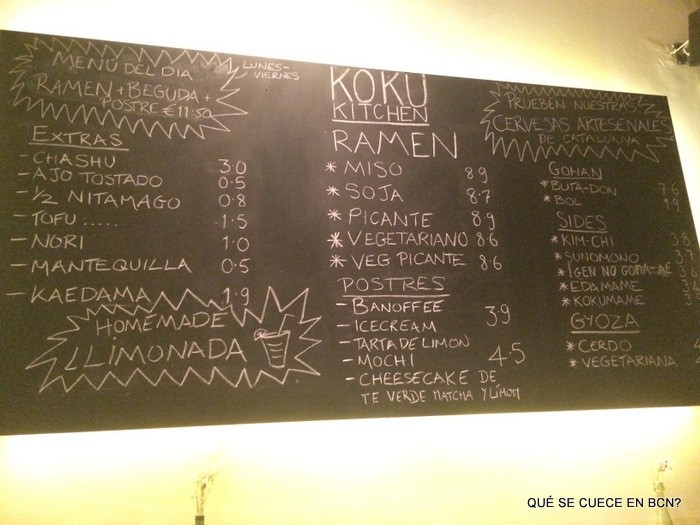 MENÚ DEL DIA
LUNES-
VIERNES
RAMEN + BEGUDA +
POSTRE €11.50
EXTRAS
- CHASHU 3.0
- AJO TOSTADO 0.5
- 1/2 NITAMAGO 0.8
- TOFU:..... 1.5
- NORI 1.0
- MANTEQUILLA 0.5
- KAEDAMA 1.9
HOMEMADE
LLIMONADA
KOKU
KITCHEN
RAMEN
* MISO 8.9
* SOJA 8.7
* PICANTE 8.9
* VEGETARIANO 8.6
* VEG PICANTE 8.6
POSTRES
- BANOFFEE
- ICECREAM 3.9
- TARTA DE LIMON
- MOCHI 4.5
- CHEESECAKE DE
TE VERDE MATCHA Y LÍMON
PRUEBEN NUESTRAS
CERVESAS ARTESENALES
DE CATALUNYA
GOHAN
* BUTA-DON 7.6
* BOL 1.9
SIDES
* KIM-CHI 3.8
* SUNOMONO
* IGEN NO GOMA-AE
* EDAMAME
* KOKUMAME
GYOZA
* CERDO
* VEGETARIANA
QUÉ SE CUECE EN BCN?